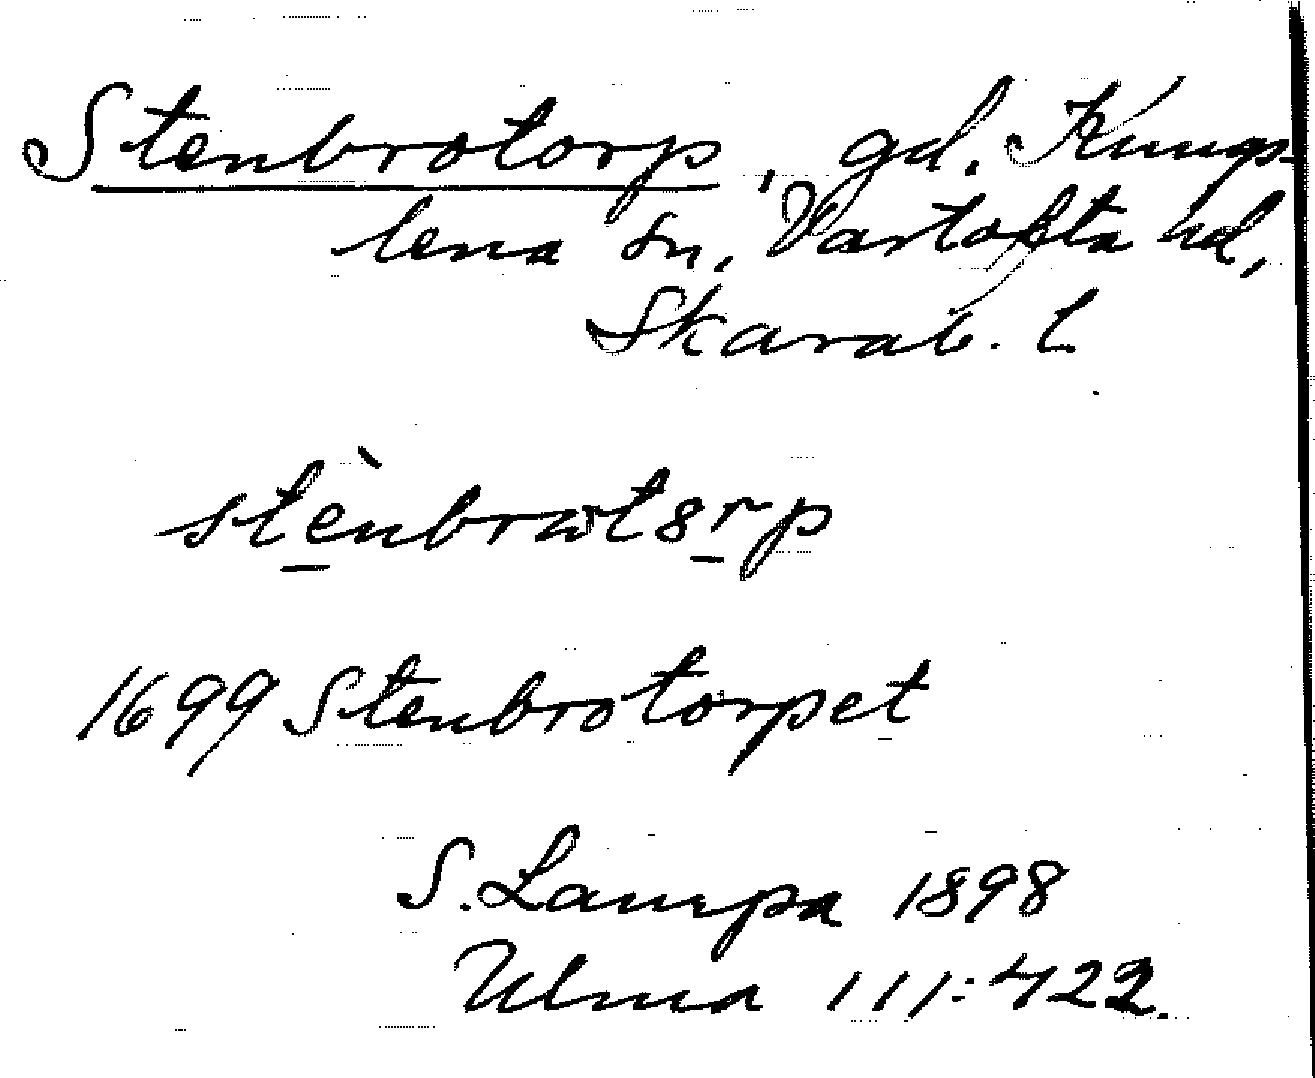 Stenbrotorp, gd. Kungs-
lena sn, Vartofta hd,
Skarab. l.
stènbrωtȣrp
1699 Stenbrotorpet
S. Lampa 1898
Ulma 111:422.